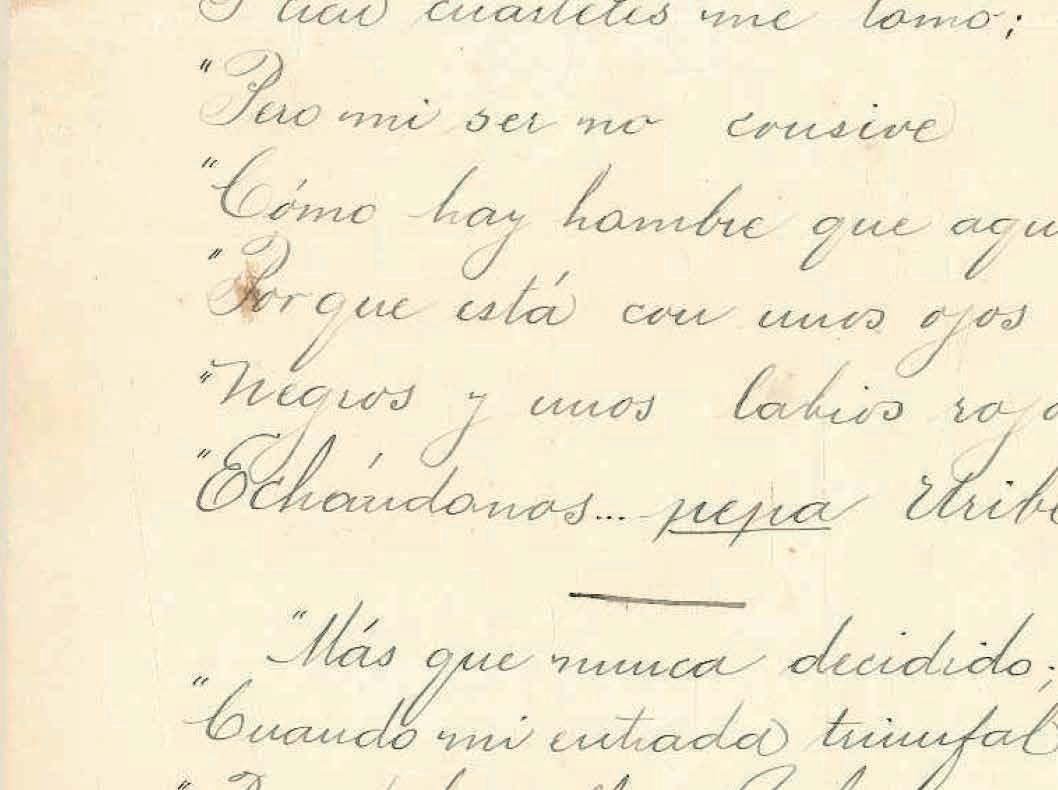 cuarteles me tomo;
"Pero mi ser no consive
"Cómo hay hombre que aqu
"Porque está con unos ojos
"Negros y unos labios rojo
"Echándonos... pepa Uribe
"Más que nunca decidido;
"Cuando mi entrada triunfal